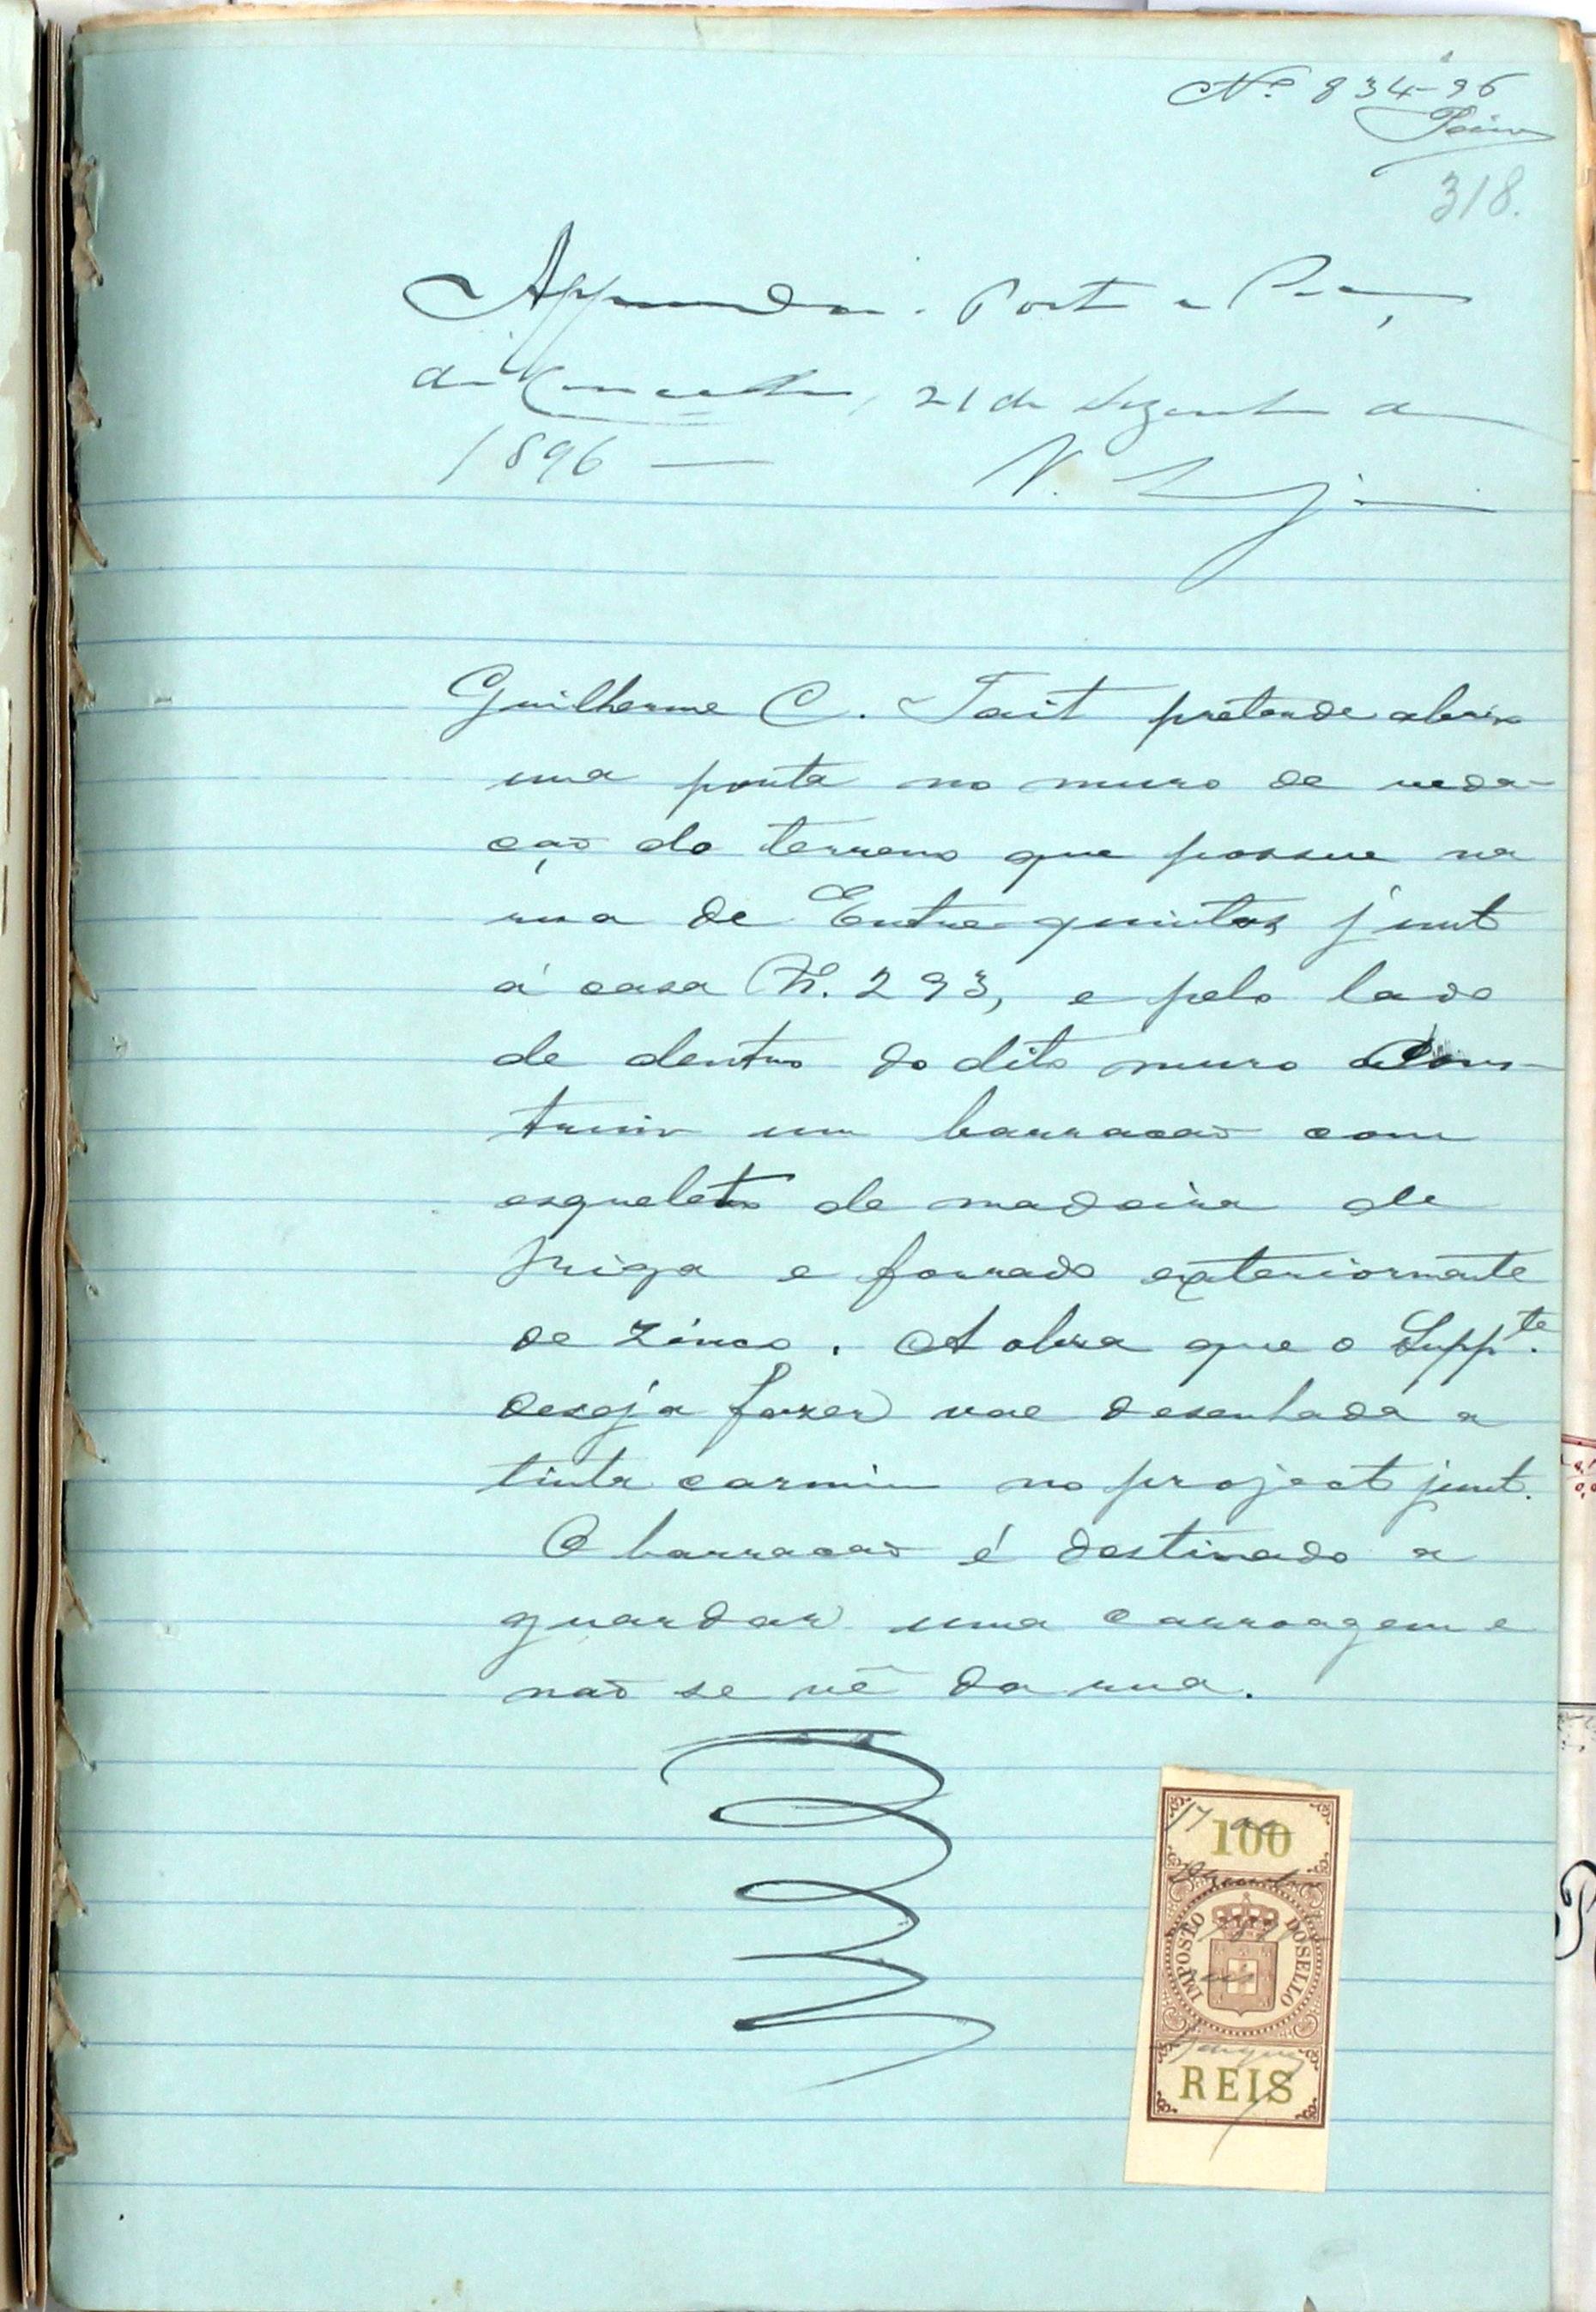 Nº 834-96
Paiva
318.
Approvada. Porto e Paços
do Concelho, 21 de dezembro de
1896 —
Guilherme C. Tait pretende abrir
uma porta no muro de veda-
ção do terreno que possue na
rua de Entre quintas junto
á casa N. 293, e pelo lado
de dentro do dito muro cons-
truir um barracão com
esqueleto de madeira de
Priga e forrado exteriormente
de zinco. A obra que o Suppte.
deseja fazer vae desenhada a
tinta carmin no projecto junto.
O barracão é destinado a
guardar uma carroagem e
não se vê da rua.
17 de
100
Dezembro
IMPOSTO DO SELLO
REIS